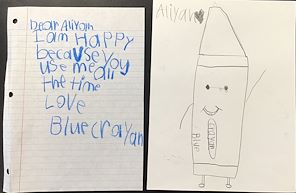 Dear Aliyah
I am Happy
because you
use me all
the time
Love
Blue crayan
Aliyah
Crayon
Blue